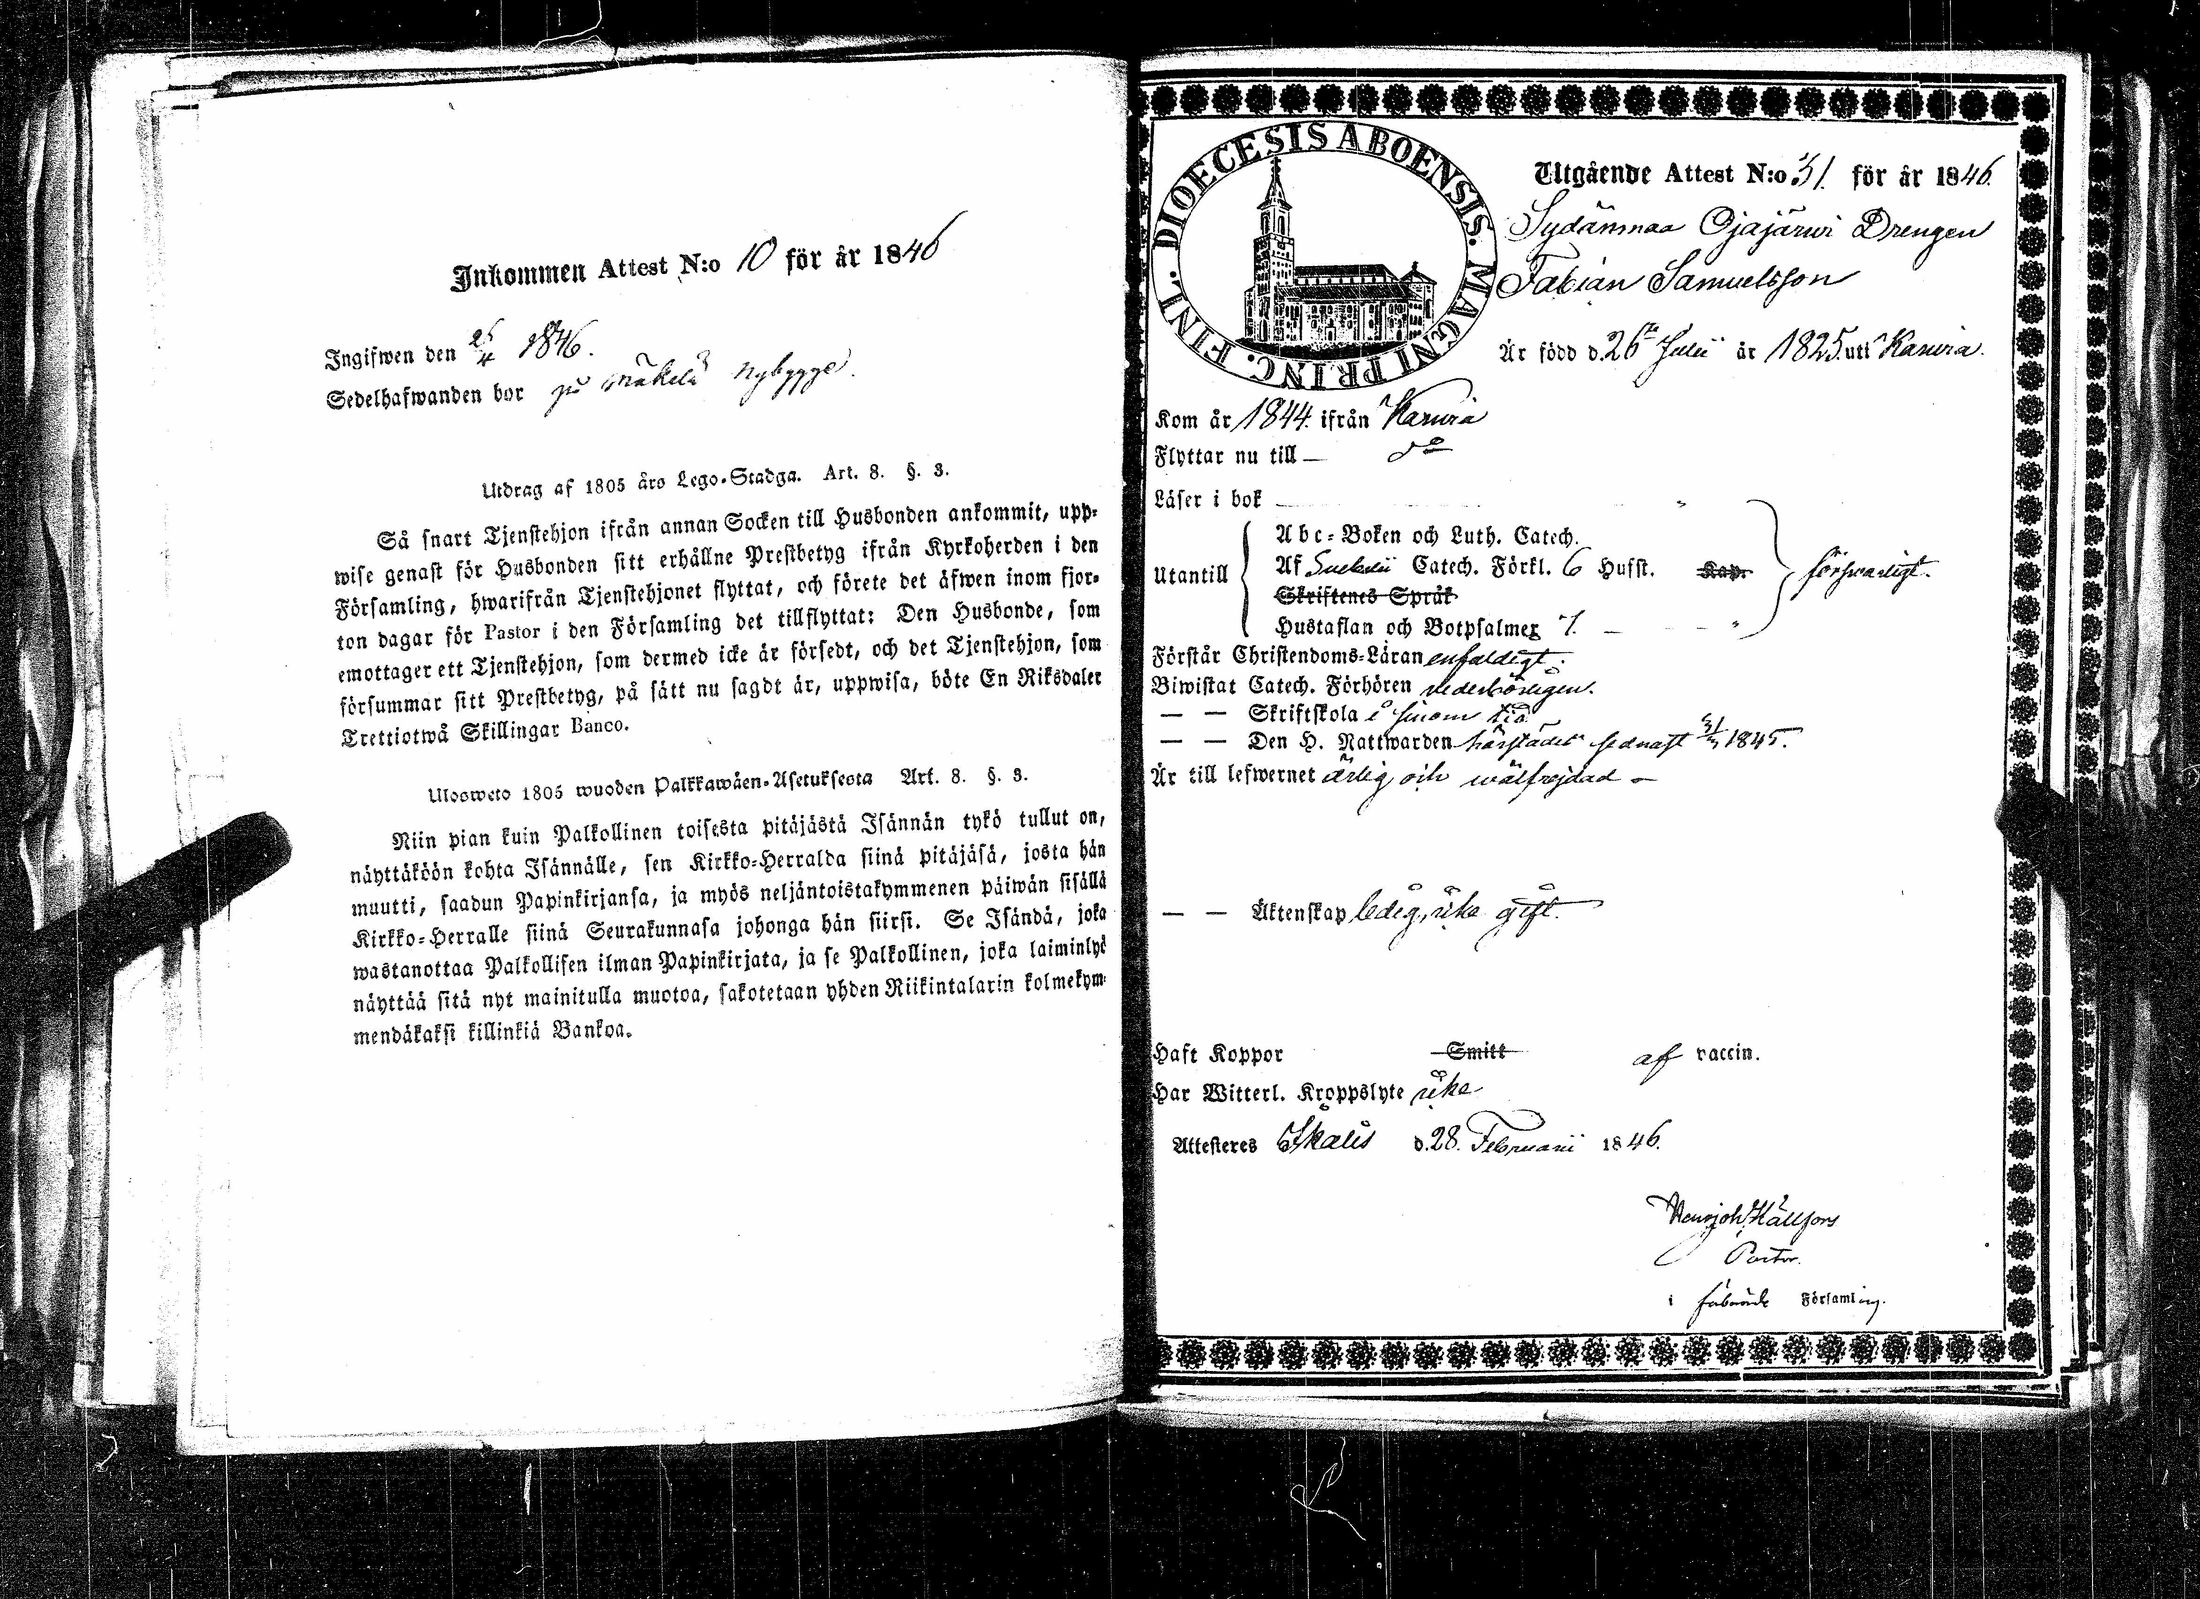 Inkommen Attest N:o 10 för år 1846
Ingifwen den 25/4 1846.
Sedelhafwanden bor på Mäkelä nybygge.
Utdrag af 1805 års Lego-Stadga. Art. 8. §. 3.
Så snart Tjenstehjon ifrån annan Socken till Husbonden ankommit, upp-
wise genast för Husbonden sitt erhållne Prestbetyg ifrån Kyrkoherden i den
Församling, hwarifrån Tjenstehjonet flyttat, och förete det äfwen inom fjor-
ton dagar för Pastor i den Församling det tillflyttat: Den Husbonde, som
emottager ett Tjenstehjon, som dermed icke är försedt, och det Tjenstehjon, som
försummar sitt Prestbetyg, på sätt nu sagdt är, uppwisa, böte En Riksdaler
Trettiotwå Skillingar Banco.
Ulosweto 1805 wuoden Palkkawäen-Asetuksesta Art. 8. §. 3.
Niin pian kuin Palkollinen toisesta pitäjästä Isännän tykö tullut on,
näyttäköön kohta Isännälle, sen Kirkko-Herralda siinä pitäjäsä, josta hän
muutti, saadun Papinkirjansa, ja myös neljäntoistakymmenen päiwän sisällä
Kirkko-Herralle siinä Seurakunnasa johonga hän siirsi. Se Isändä, joka
wastanottaa Palkollisen ilman Papinkirjata, ja se Palkollinen, joka laiminlyö
näyttää sitä nyt mainitulla muotoa, sakotetaan yhden Riikintalarin kolmekym-
mendäkaksi killinkiä Bankoa.
DIOECESIS ABOENSIS. MAGNI PRINC. FINL.
Utgående Attest N:o 31. för år 1846.
Sydänmaa Ojajärwi Drengen
Fabian Samuelsson
Är född d. 26te Julii år 1825. uti Karvia.
Kom år 1844. ifrån Karvia
Flyttar nu till — do
Läser i bok
Abc-Boken och Luth. Catech.
Utantill Af Svebelii Catech. Förkl. 6 Hufst. Kap. försvarligt.
Skriftenes Språk
Hustaflan och Botpsalmer 7.
Förstår Christendoms-Läran enfaldigt.
Biwistat Catech. Förhören vederbörligen.
— — Skriftskola i sinom tid
— — Den H. Nattwarden härstädes sednast 1845.
Är till lefwernet ärlig och wälfrejdad —
— — Äktenskap ledig, icke gift.
Haft Koppor Smitt af vaccin.
Har Witterl. Kroppslyte icke
Attesteres Ikalis d. 28. Februarii 1846.
Henr Joh Hällfors
Pastor.
i Församling.